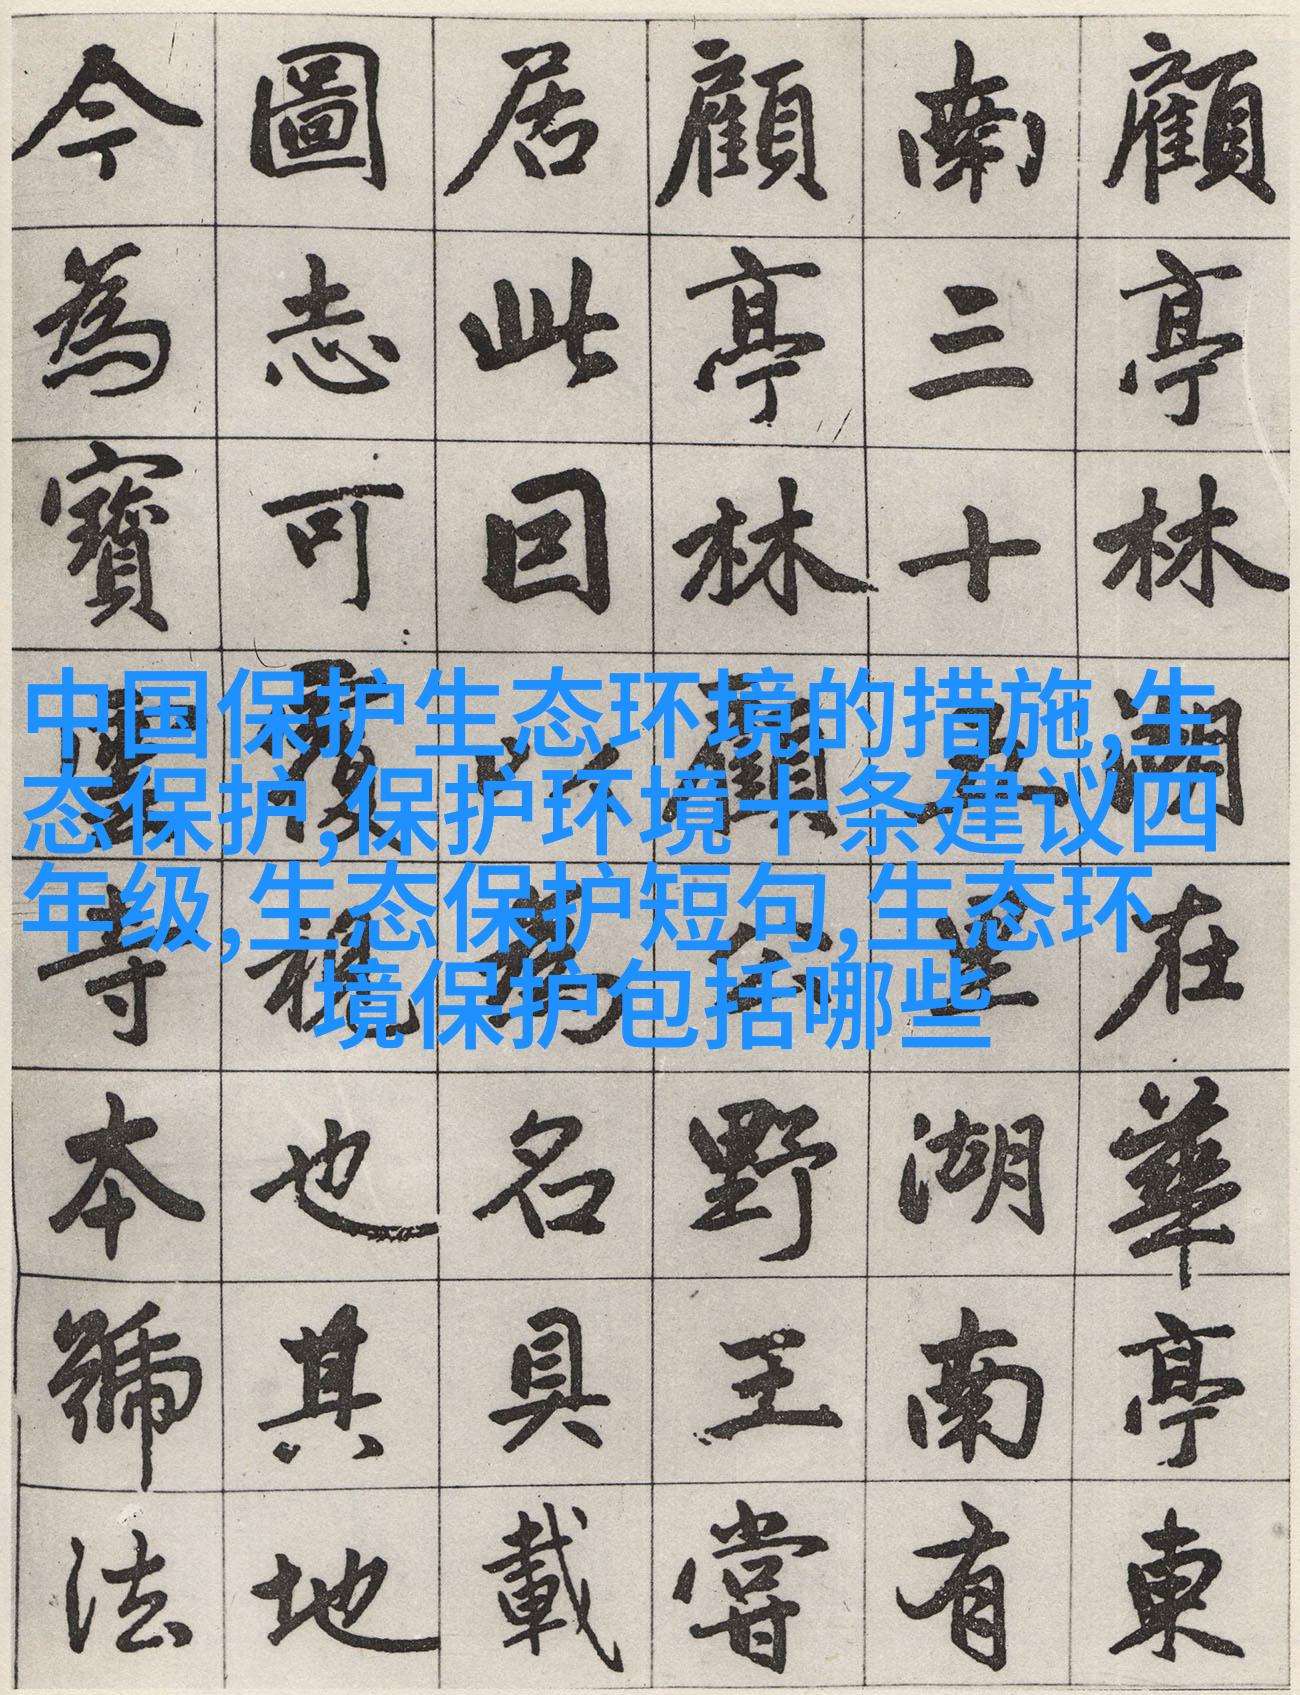 顧亭林湖在華亭東
南三十五里湖南有
顧亭林顧公野王嘗
居此囙以為名具載
圖志可覆視也其地
今為寶雲寺本號法
中国保护生态环境的措施,生
态保护,保护环境十条建议四
年级,生态保护短句,生态环
境保护包括哪些